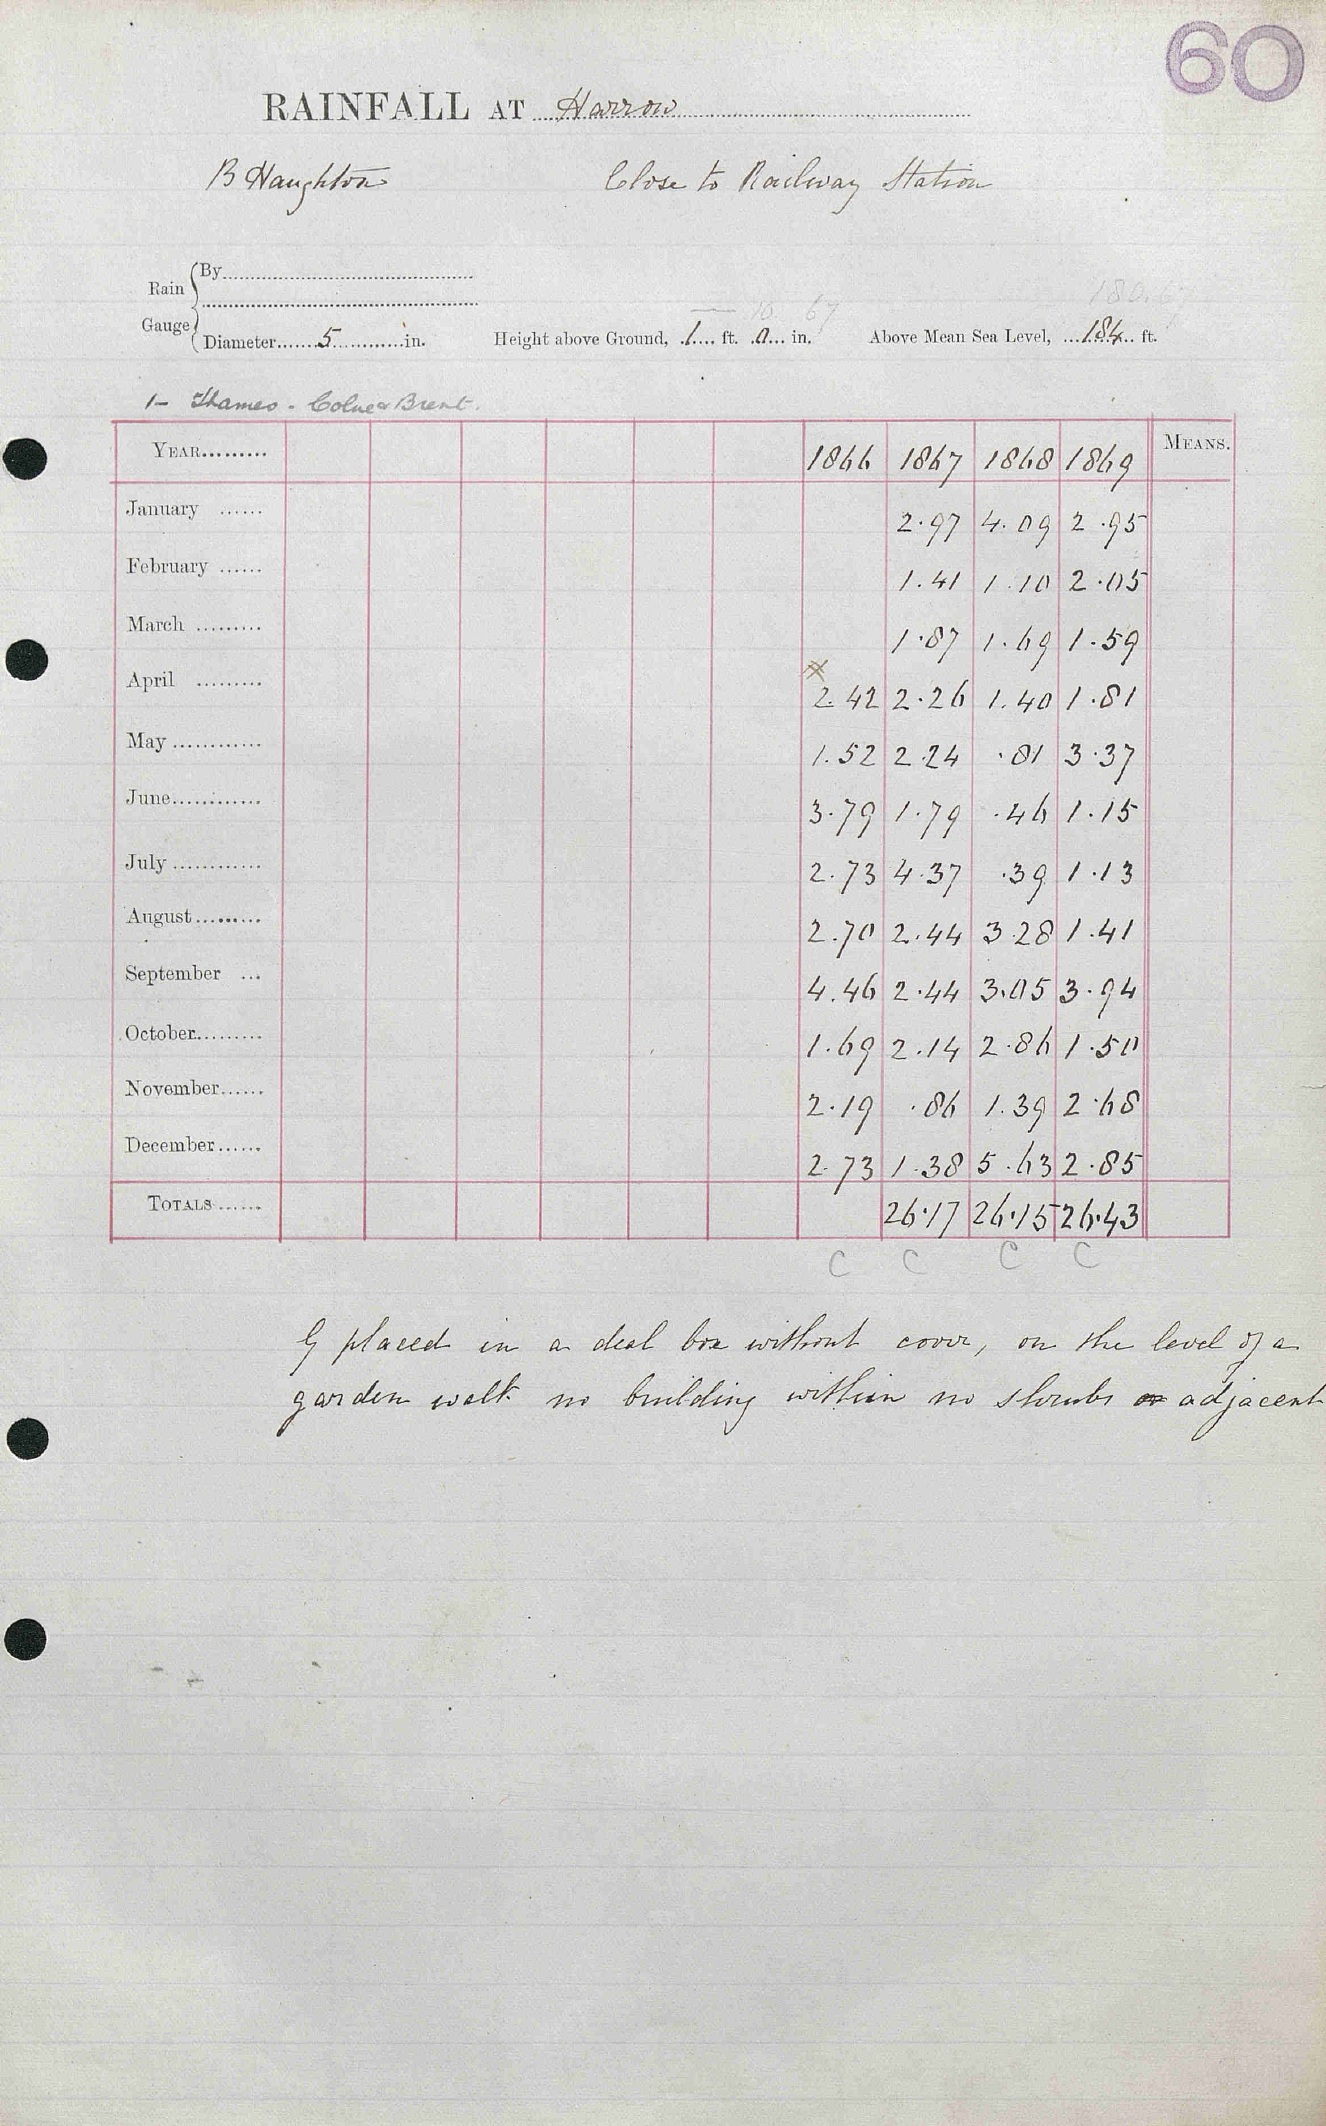 60
RAINFALL AT Harrow
B Haughton Close to Railway Station
Rain Gauge By
Diameter 5 in. Height above Ground, 1 ft. 0 in. Above Mean Sea Level, 184 ft.
10 67 180.67
1- Thames - Colne & Brent.
YEAR 1866 1867 1868 1869 MEANS.
January 2.97 4.09 2.95
February 1.41 1.10 2.05
March 1.87 1.69 1.59
April 2.42 2.26 1.40 1.81
May 1.52 2.24 .81 3.37
June 3.79 1.79 .46 1.15
July 2.73 4.37 .39 1.13
August 2.70 2.44 3.28 1.41
September 4.46 2.44 3.05 3.94
October 1.69 2.14 2.86 1.50
November 2.19 .86 1.39 2.68
December 2.73 1.38 5.63 2.85
TOTALS 26.17 26.15 26.43
C C C C
G placed in a deal box without cover, on the level of a
garden walk no building within no shrubs adjacent